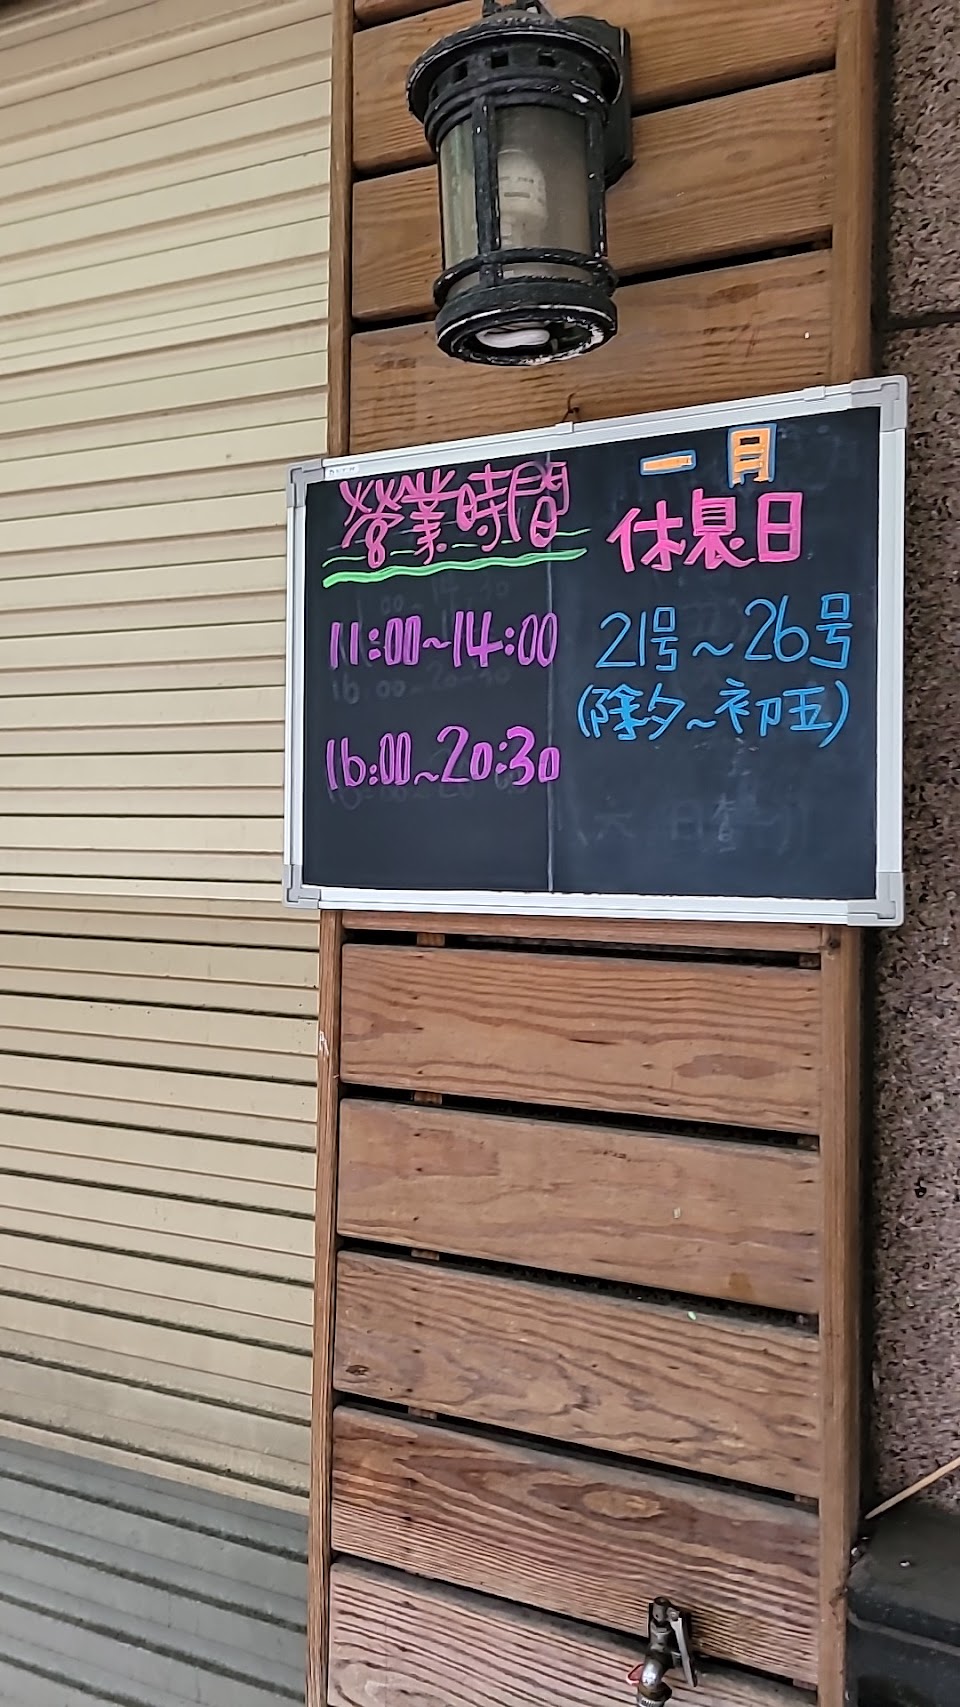 營業時間
11:00~14:00
16:00~20:30
一月
休息日
21号~26号
(除夕~初五)